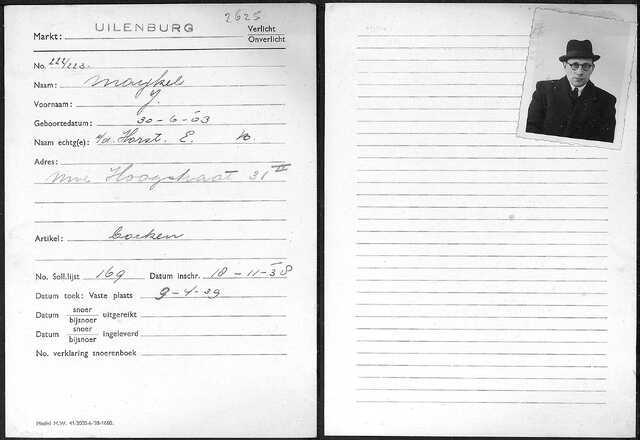 2625
Markt: UILENBURG Verlicht
Onverlicht
No. 222/223.
Naam: Maykels
Voornaam: J.
Geboortedatum: 30-6-03
Naam echtg(e): v/d. Horst. E.
Adres:
Nwe Hoogstraat 31 II
Artikel: boeken
No. Soll.lijst 169 Datum inschr. 18-11-38
Datum toek: Vaste plaats 9-4-39
Datum snoer
bijsnoer uitgereikt
Datum snoer
bijsnoer ingeleverd
No. verklaring snoerenboek
Model M.W. 41/3000-6/'38-1680.